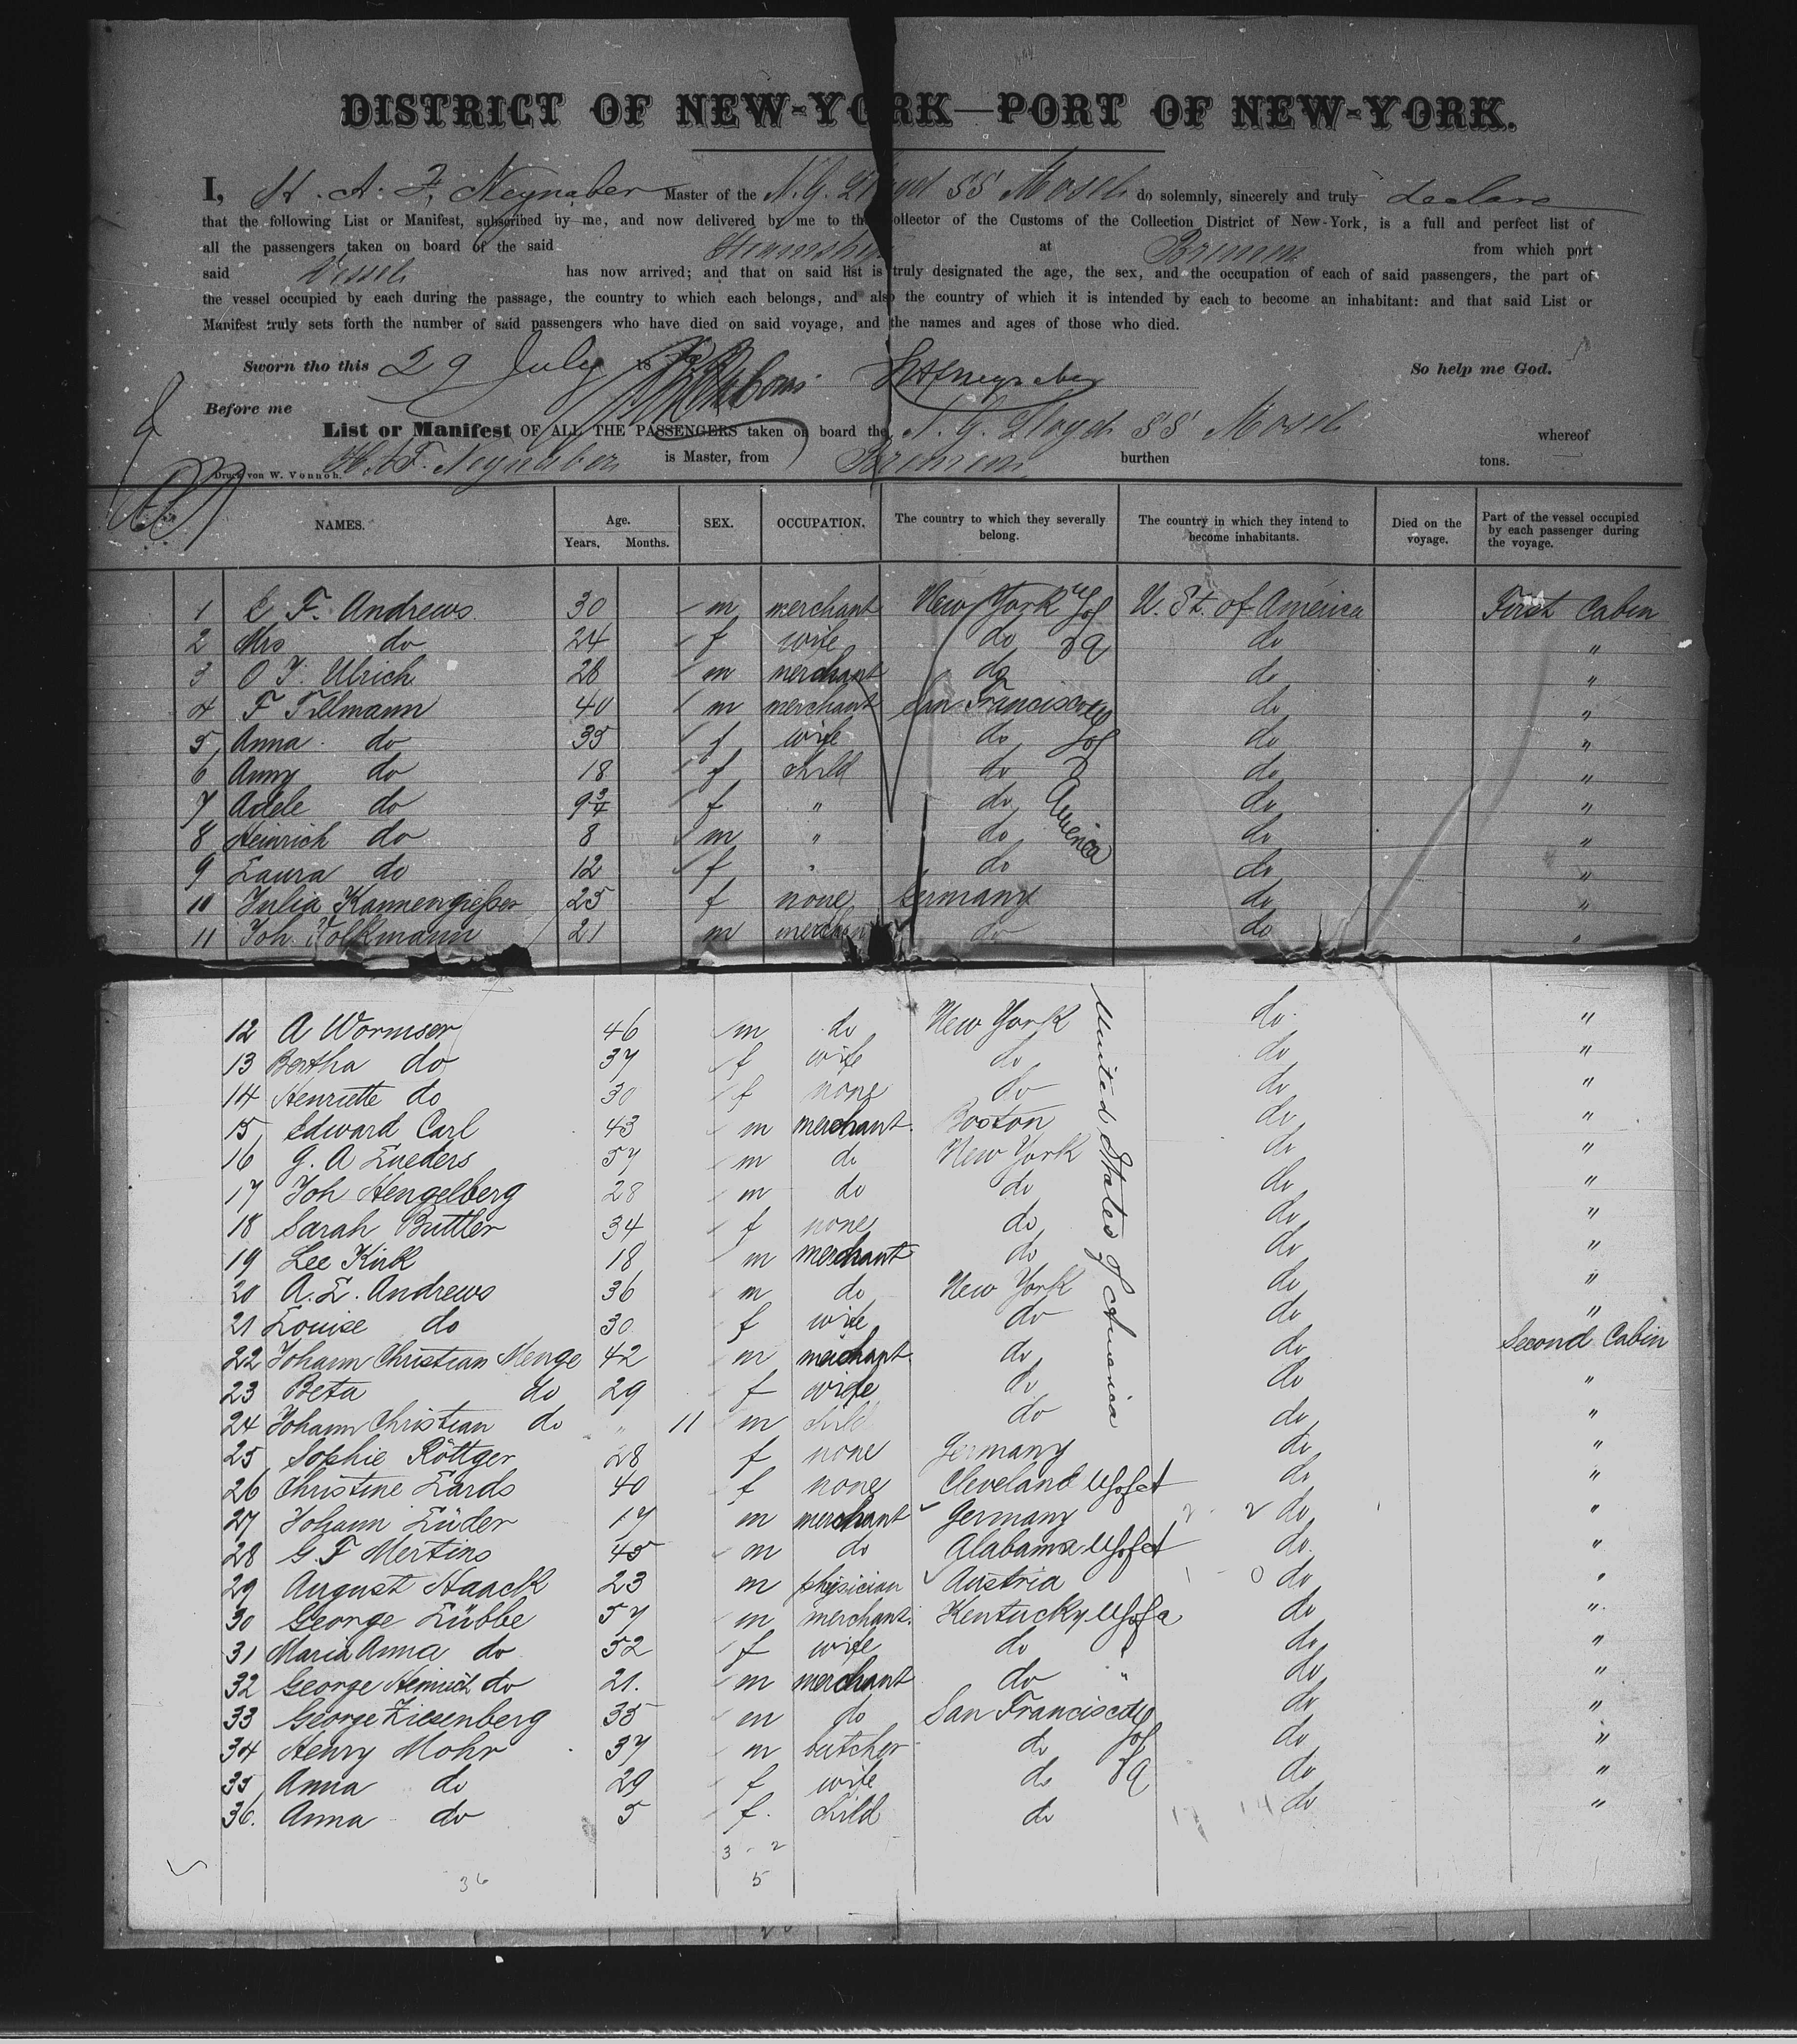 DISTRICT OF NEW-YORK—PORT OF NEW-YORK.
I, H. A. F. Neynaber Master of the N. G. Lloyd SS Mosel do solemnly, sincerely and truly declare
that the following List or Manifest, subscribed by me, and now delivered by me to the Collector of the Customs of the Collection District of New-York, is a full and perfect list of
all the passengers taken on board of the said Steamship at Bremen from which port
said Vessel has now arrived; and that on said list is truly designated the age, the sex, and the occupation of each of said passengers, the part of
the vessel occupied by each during the passage, the country to which each belongs, and also the country of which it is intended by each to become an inhabitant: and that said List or
Manifest truly sets forth the number of said passengers who have died on said voyage, and the names and ages of those who died.
Sworn tho this 29 July 18 HAFNeynaber So help me God.
Before me
List or Manifest OF ALL THE PASSENGERS taken on board the N. G. Lloyd SS Mosel whereof
H. A. F. Neynaber is Master, from Bremen burthen tons.
Druck von W. Vonnoh.
NAMES. Age. Years. Months. SEX. OCCUPATION. The country to which they severally belong. The country in which they intend to become inhabitants. Died on the voyage. Part of the vessel occupied by each passenger during the voyage.
1 F. Andrews 30 m merchant New York U S of U. St. of America First Cabin
2 Mrs do 24 f wife do do "
3 O F. Ulrich 28 m merchant do do "
4 F Tillmann 40 m merchant San Francisco do "
5 Anna do 35 f wife do do "
6 Anny do 18 f child do do "
7 Adele do 9 3/4 f " do America do "
8 Heinrich do 8 m " do do "
9 Laura do 12 f " do do "
10 Julia Kannengießer 25 f none Germany do "
11 Joh. Volkmann 21 m merchant do do "
12 A Wormser 46 m do New York United States of America do "
13 Bertha do 37 f wife do do "
14 Henriette do 30 f none do do "
15 Edward Carl 43 m merchant Boston do "
16 G. A Lueders 57 m do New York do "
17 Joh Hengelberg 28 m do do do "
18 Sarah Buttler 34 f none do do "
19 Lee Kirk 18 m merchant do do "
20 A. L. Andrews 36 m do New York do "
21 Louise do 30 f wife do do "
22 Johann Christian Menge 42 m merchant do do Second Cabin
23 Beta do 29 f wife do do "
24 Johann Christian do " 11 m child do do "
25 Sophie Röttger 28 f none Germany do "
26 Christine Lards 40 f none Cleveland U S of A do "
27 Johann Lüder 17 m merchant Germany 2 - 2 do "
28 G. F Mertins 45 m do Alabama U S of A do "
29 August Haack 23 m physician Austria 1 - 0 do "
30 George Lübbe 57 m merchant Kentucky U S of A do "
31 Maria Anna do 52 f wife do do "
32 George Heinrich do 21. m merchant do " do "
33 George Ziesenberg 35 m do San Francisco do "
34 Henry Mohr 37 m butcher do do "
35 Anna do 29 f wife do do "
36. Anna do 5 f. child do do "
3 - 2
36 5